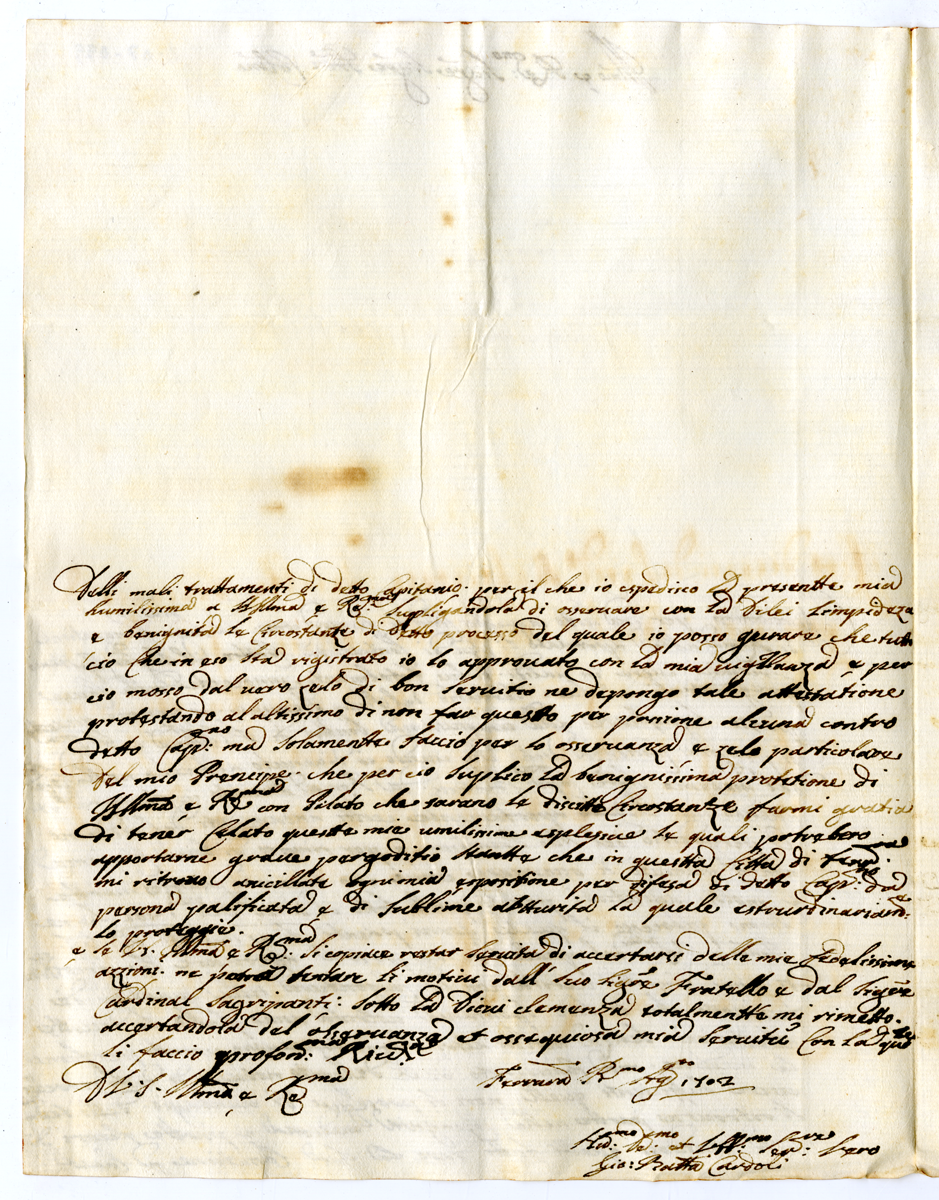 Delli mali trattamenti di detto Capitanio. per il che io espedisco la presentte mia
humilissima a V S Illma e Rema: supligandola di oseruare con la Dilei limpideza
e benignita le Circostanze di detto processo del quale io posso giurare che tutto
cio che in eso sta rigistrato io lo approuato con la mia vigillanza e per
cio mosso dal uero zelo di bon seruitio ne depongo tale attestatione
protestando al altissimo di non far questto per pasione alcuna contro
detto Capno: ma solamentte faccio per lo osseruanza e zelo particolare
del mio Prencipe. che per cio suplico la benignissima protetione di
V S Illma e Rema con Pilato che sarano le discitte Circostantze farmi gratia
di tener Celato queste mie umilisime esplesiue le quali potrebero
apportarne graue pergoditio stantte che in questa Citta di Ferra:
mi ritrouo anicillate ogni mia espositione per difesa di detto Capno: da
persona palificata e di sublime autturita la quale estraordinariame:
lo protegge.
e se V. S. Illma e Rema: si copiace restar seruita di accertarsi delle mie fedelissime
azzioni ne potra tentare li motiui dall' suo Sigre Fratello e dal Sigre
Cardinal Sagripanti: sotto la Dicui clemenza totalmentte mi rimetto.
accertandola del obseruanza et ossequiosa mia seruitu con la qule
li faccio profonma: Riueza
D V. S. Illma e Rema
Ferrara Pmo Agto 1702
Hummo Demo et Obblmo Serre: Vero
Gio: Batta Cardoli